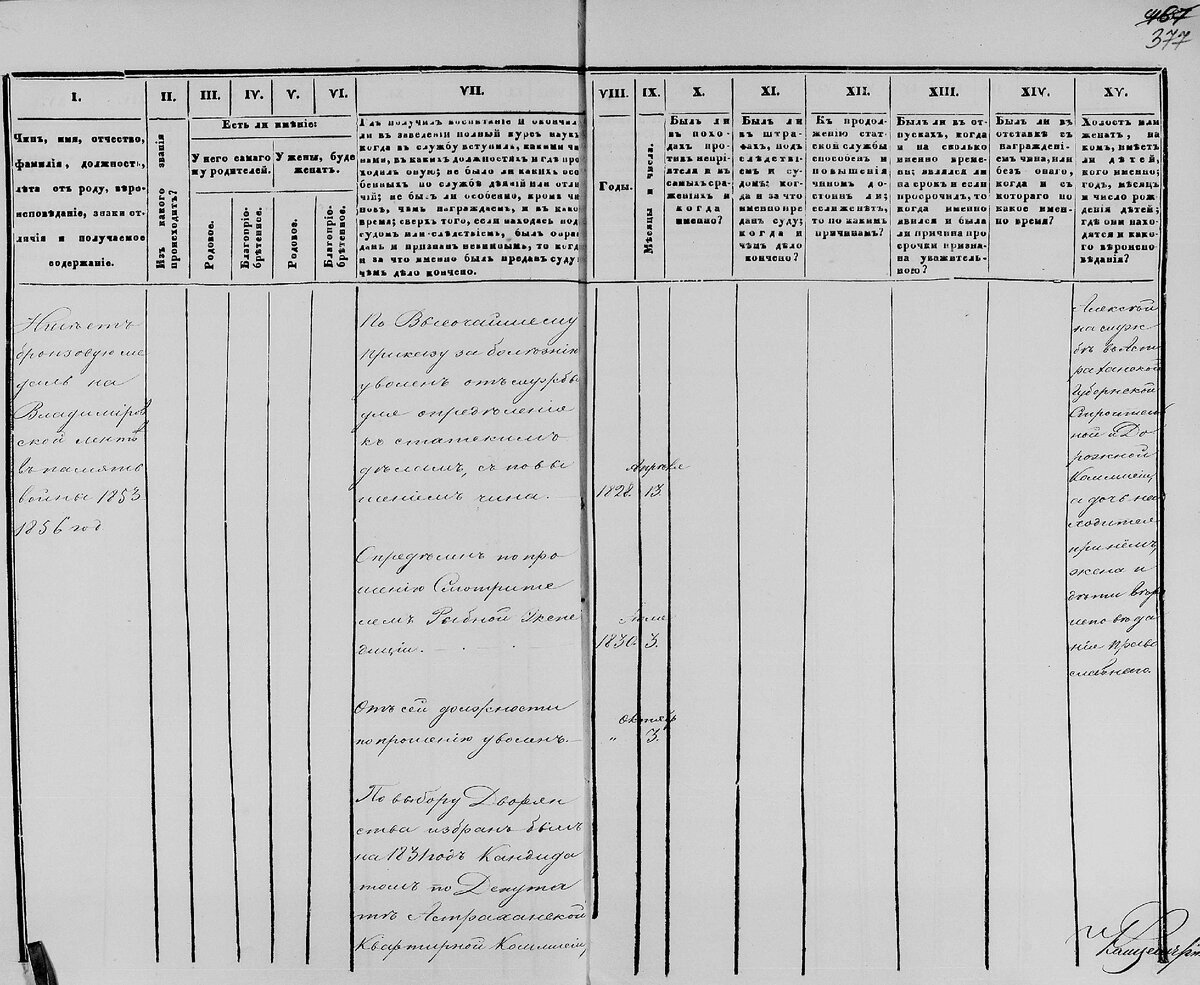 467
377
I.
II.
III.
IV.
V.
VI.
VII.
VIII.
IX.
X.
XI.
XII.
XIII.
XIV.
XV.
Чинъ, имя, отчество,
фамилія, должность,
лѣта отъ роду, вѣро-
исповѣданіе, знаки от-
личія и получаемое
содержаніе.
Изъ какого званія
происходитъ?
Есть ли имѣніе:
У него самаго
и у родителей.
У жены, буде
женатъ.
Родовое.
Благопріо-
брѣтенное.
Родовое.
Благопріо-
брѣтенное.
Гдѣ получилъ воспитаніе и окончилъ
ли въ заведеніи полный курсъ наукъ
когда въ службу вступилъ, какими чи-
нами, въ какихъ должностяхъ и гдѣ про-
ходилъ оную; не было ли какихъ осо-
бенныхъ по службѣ дѣяній или отли-
чій; не былъ ли особенно, кромѣ чи-
новъ, чѣмъ награждаемъ, и въ какое
время; сверхъ того, если находясь подъ
судомъ или слѣдствіемъ, былъ оправ-
данъ и признанъ невиннымъ, то когда
и за что именно былъ преданъ суду
чѣмъ дѣло кончено.
Годы.
Мѣсяцы и числа.
Былъ ли
въ похо-
дахъ про-
тивъ непрі-
ятеля и въ
самыхъ сра-
женіяхъ и
когда
именно?
Былъ ли
въ штра-
фахъ, подъ
слѣдстві-
емъ и су-
домъ; ког-
да и за что
именно пре-
данъ суду;
когда и
чѣмъ дѣло
кончено?
Къ продол-
женію стат-
ской службы
способенъ и
къ повышенія
чиномъ до-
стоинъ ли;
если же нѣтъ,
то по какимъ
причинамъ?
Былъ ли въ от-
пускахъ, когда
и на сколько
именно време-
ни; явился ли
на срокъ и если
просрочилъ, то
когда именно
явился и была
ли причина про-
срочки призна-
на уважитель-
ною?
Былъ ли въ
отставкѣ съ
награжденi-
емъ чина, или
безъ онаго,
когда и съ
котораго по
какое имен-
но время?
Холостъ или
женатъ, на
комъ, имѣетъ
ли дѣтей,
кого именно;
годъ, мѣсяцъ
и число рож-
денія дѣтей;
гдѣ они нахо-
дятся и како-
го вѣроиспо-
вѣданія?
Имѣетъ
бронзовую ме
даль на
Владимiров
ской лентѣ
въ память
войны 1853
1856 год
По Высочайшему
приказу за болѣзнію
уволенъ отъ службы
для опредѣленія
къ статскимъ
дѣламъ, съ повы
шеніемъ чина.
Апрѣля
1828. 13.
Опредѣленъ по про
шенію Смотрите
лемъ Рыбной Экспе
диціи.
Іюля
1830. 3.
Отъ сей должности
по прошенію уволенъ.
Октябр
„ 3.
По выбору Дворян
ства избранъ былъ
на 1831 годъ Кандида
томъ по Депута
тѣ Астраханской
Квартирной Коммисіи,
Алексѣй
на служ
бѣ въ Аст
раханской
Губернской
Строитель
ной и До
рожной
Коммисіи,
а дочь на
ходится
при нёмъ,
жена и
дѣти вѣро
исповѣда
нія право
славнаго.